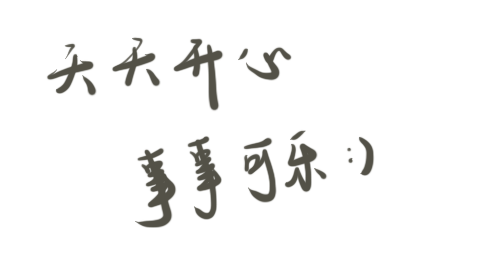 天天开心
事事可乐:)